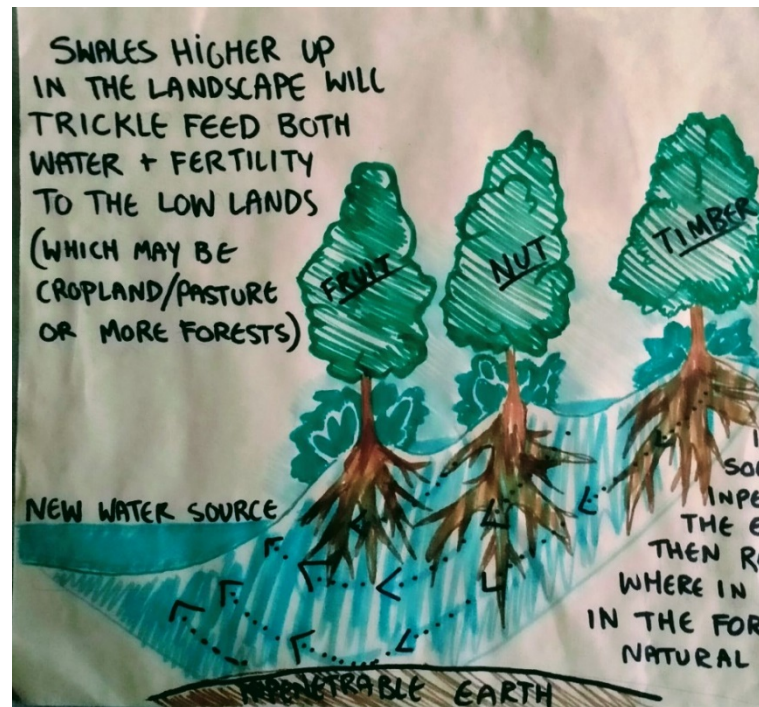 SWALES HIGHER UP
IN THE LANDSCAPE WILL
TRICKLE FEED BOTH
WATER + FERTILITY
TO THE LOW LANDS
(WHICH MAY BE
CROPLAND/PASTURE
OR MORE FORESTS)
FRUIT
NUT
TIMBER
NEW WATER SOURCE
INPE
THE E
THEN R
WHERE IN
IN THE FOR
NATURAL
IMPENETRABLE EARTH